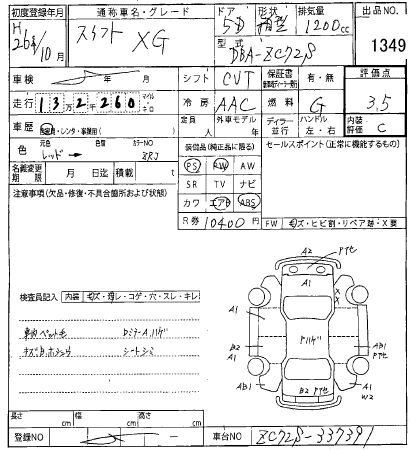 初度登録年月 通称車名・グレード ドア 形状 排気量 出品NO
H 26年 10月 スイフト XG 5D 箱型 1200cc 1349
型式 DBA-ZC72S
車検 年 月 シフト CVT 保証書 有・無 評価点 3.5
走行 1 3万 2千 2 6 0 マイル キロ 冷房 AAC 燃料 G
車歴 自家用・レンタ・事業用( ) 定員 人 外車モデル 年 ディーラー 並行 ハンドル 左・右 内装評価 C
色 元色 レッド→ カラーNO ZRJ 装備品(純正品に限る) セールスポイント(正常に機能するもの)
名義変更期限 月 日迄 積載 t PS PW AW
注意事項(欠品・修復・不具合箇所および状態) SR TV ナビ
カワ エアB ABS
R券 10400円 FW キズ・ヒビ割・リペア跡・X要
A2 Pアセ
A1
検査員記入 内装 キズ・汚レ・コゲ・穴・スレ・キレ
A1 X X A1
車内ペット毛 DミラーA,ハゲ Pハゲ
シートシミ B2 AB1 Pアセ
AB1 A1 B2 Pアセ A1 W2
長さ cm 幅 cm 高さ cm
登録NO 車台NO ZC72S-337391